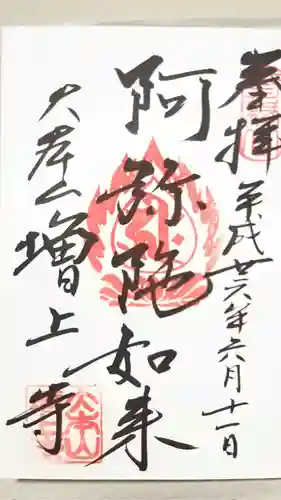 奉拝 平成廿六年六月十一日
阿弥陀如来
大本山増上寺